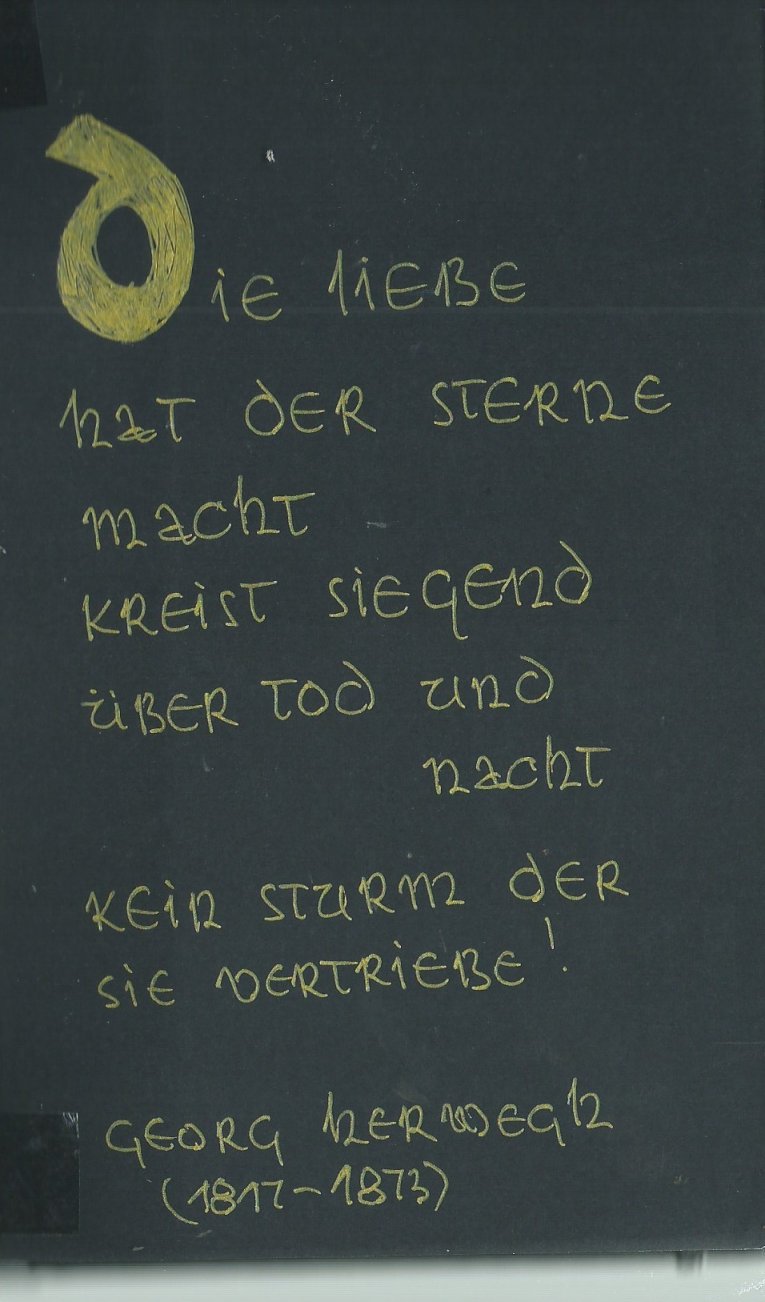 Die Liebe
hat der Sterne
Macht
kreist siegend
über Tod und
Nacht
kein Sturm der
sie vertriebe!
Georg Herwegh
(1817-1873)